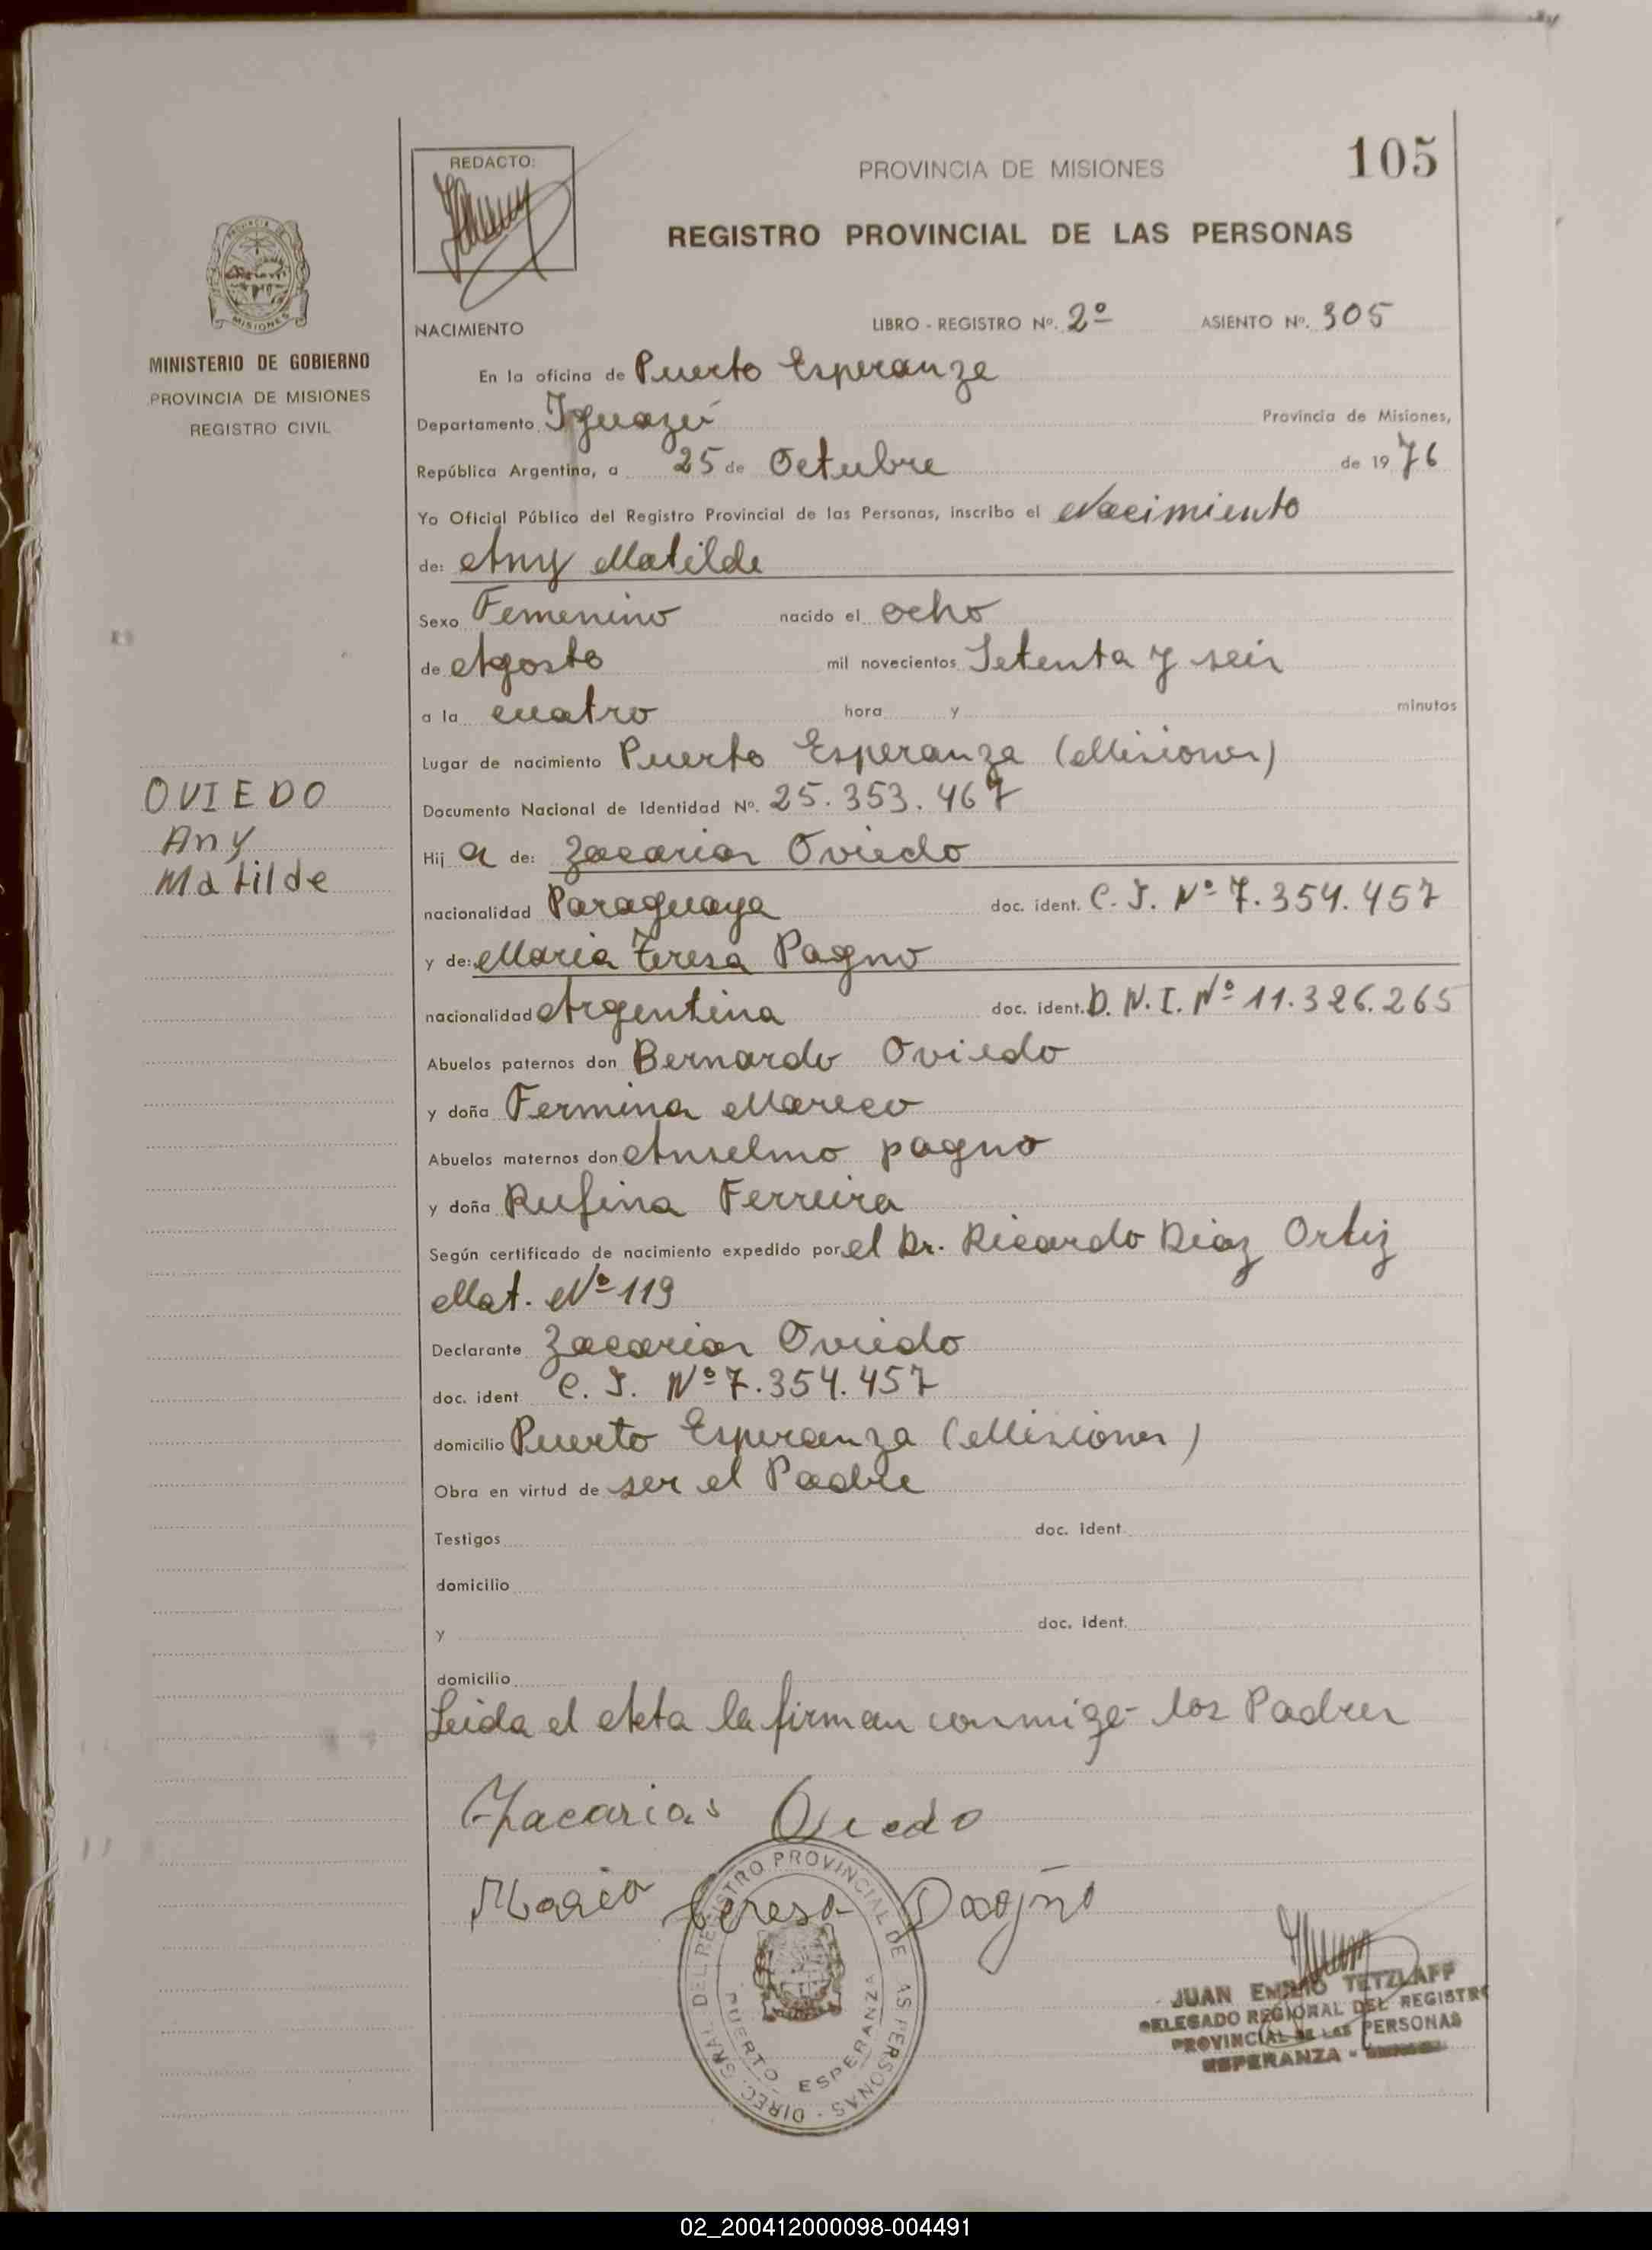 105
REDACTO:
PROVINCIA DE MISIONES
REGISTRO PROVINCIAL DE LAS PERSONAS
MISIONES
MINISTERIO DE GOBIERNO
PROVINCIA DE MISIONES
REGISTRO CIVIL
NACIMIENTO LIBRO - REGISTRO Nº. 2º ASIENTO Nº. 305
En la oficina de Puerto Esperanza
Departamento Iguazú Provincia de Misiones,
República Argentina, a 25 de Octubre de 1976
Yo Oficial Público del Registro Provincial de las Personas, inscribo el Nacimiento
de: Any Matilde
Sexo Femenino nacido el ocho
de Agosto mil novecientos Setenta y seis
a la cuatro hora y minutos
Lugar de nacimiento Puerto Esperanza (Misiones)
Documento Nacional de Identidad Nº. 25.353.467
OVIEDO
Any
Matilde
Hij a de: Zacarias Oviedo
nacionalidad Paraguaya doc. ident. C. I. Nº 7.354.457
y de: Maria Teresa Pagno
nacionalidad Argentina doc. ident. D. N. I. Nº 11.326.265
Abuelos paternos don Bernardo Oviedo
y doña Fermina Mareco
Abuelos maternos don Anselmo pagno
y doña Rufina Ferreira
Según certificado de nacimiento expedido por el Dr. Ricardo Diaz Ortiz
Mat. Nº 119
Declarante Zacarias Oviedo
doc. ident. C. I. Nº 7.354.457
domicilio Puerto Esperanza (Misiones)
Obra en virtud de ser el Padre
Testigos doc. ident.
domicilio
y doc. ident.
domicilio
Leida el Acta la firman conmigo los Padres
Zacarias Oviedo
Maria Teresa Pagño
DIREC. GRAL. DEL REGISTRO PROVINCIAL DE LAS PERSONAS
PUERTO ESPERANZA
JUAN EMILIO TETZLAFF
DELEGADO REGIONAL DEL REGISTRO
PROVINCIAL DE LAS PERSONAS
ESPERANZA -
02_200412000098-004491